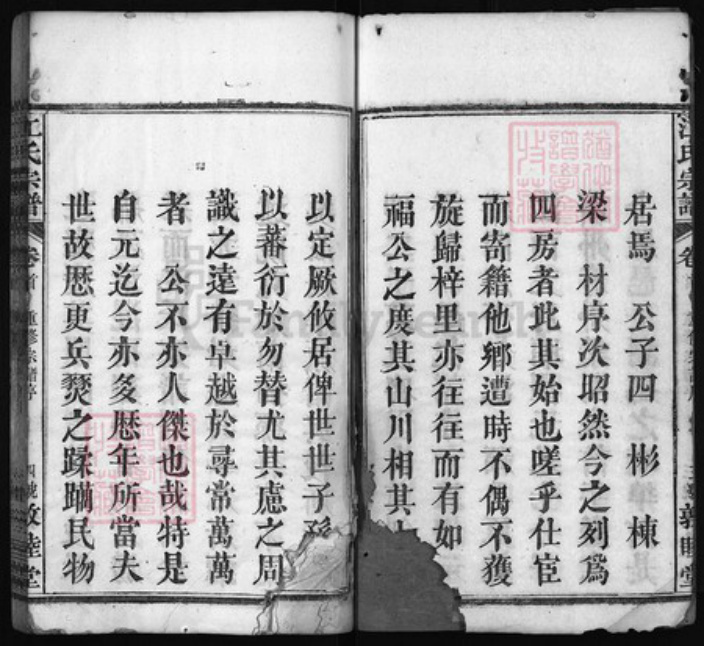 居焉 公子四 彬 棟
梁 材序次昭然今之列爲
四房者此其始也嗟乎仕宦
而寄籍他鄉遭時不偶不獲
旋歸梓里亦往往而有如
福公之度其山川相其
以定厥攸居俾世世子孫
以蕃衍於勿替尤其慮之周
識之遠有卓越於尋常萬萬
者 公不亦人傑也哉特是
自元迄今亦多歷年所當夫
世故歷更兵燹之蹂躪民物
江氏宗譜 卷首 重修宗譜序 四號 敦睦堂